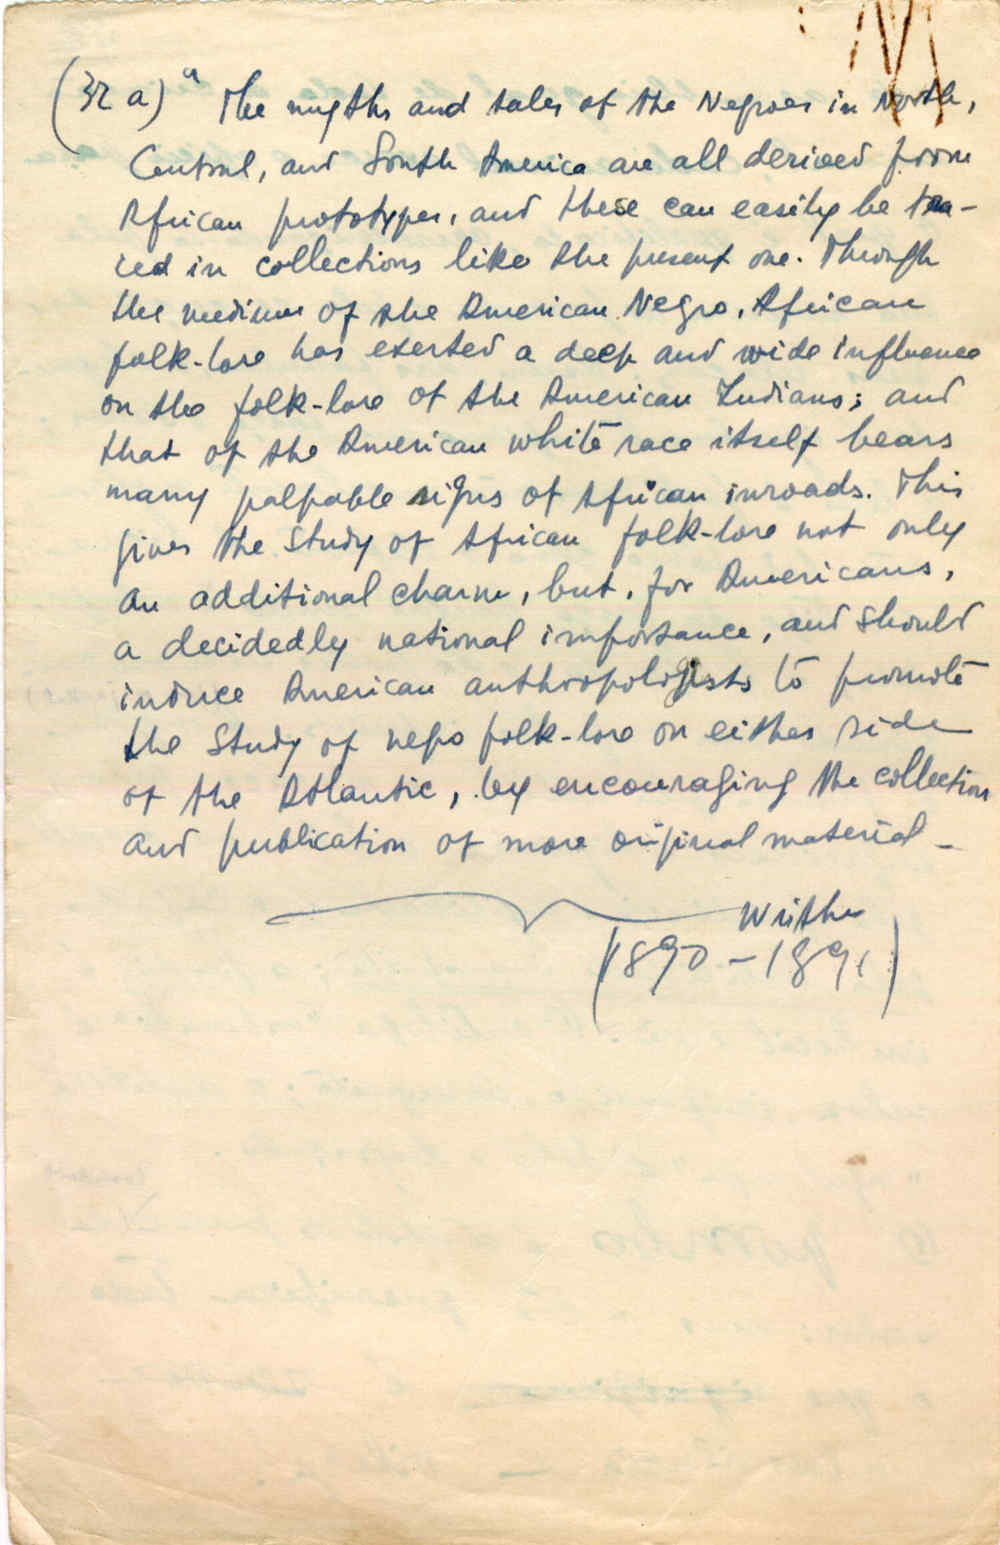 (32 a) " The mygths and tales of the Negroes in North,
Central, and South America are all derived from
African prototypes, and these can easily be tra-
ced in collections like the present one. Through
the medium of the American Negro, African
folk-lore has exerted a deep and wide influence
on the folk-lore of the American Indians; and
that of the American white race itself bears
many palpable signs of African inroads. This
gives the Study of African folk-lore not only
an additional charm, but, for Americans,
a decidedly national importance, and should
induce American anthropologists to promote
the Study of negro folk-lore on either side
of the Atlantic, by encouraging the collection
and publication of more original material -
(1890 - 1891)